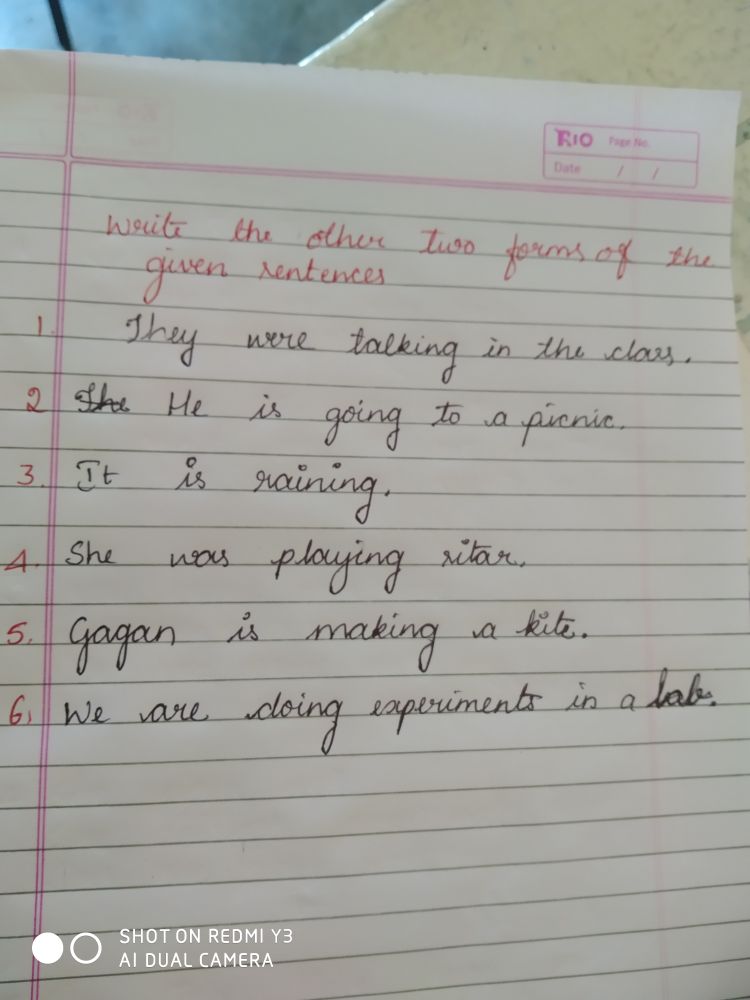 RIO Page No.
Date / /
Write the other two forms of the
given sentences
1. They were talking in the class.
2 The He is going to a picnic.
3. It is raining.
4. She was playing sitar.
5. Gagan is making a kite.
6. We are doing experiments in a lab.
SHOT ON REDMI Y3
AI DUAL CAMERA